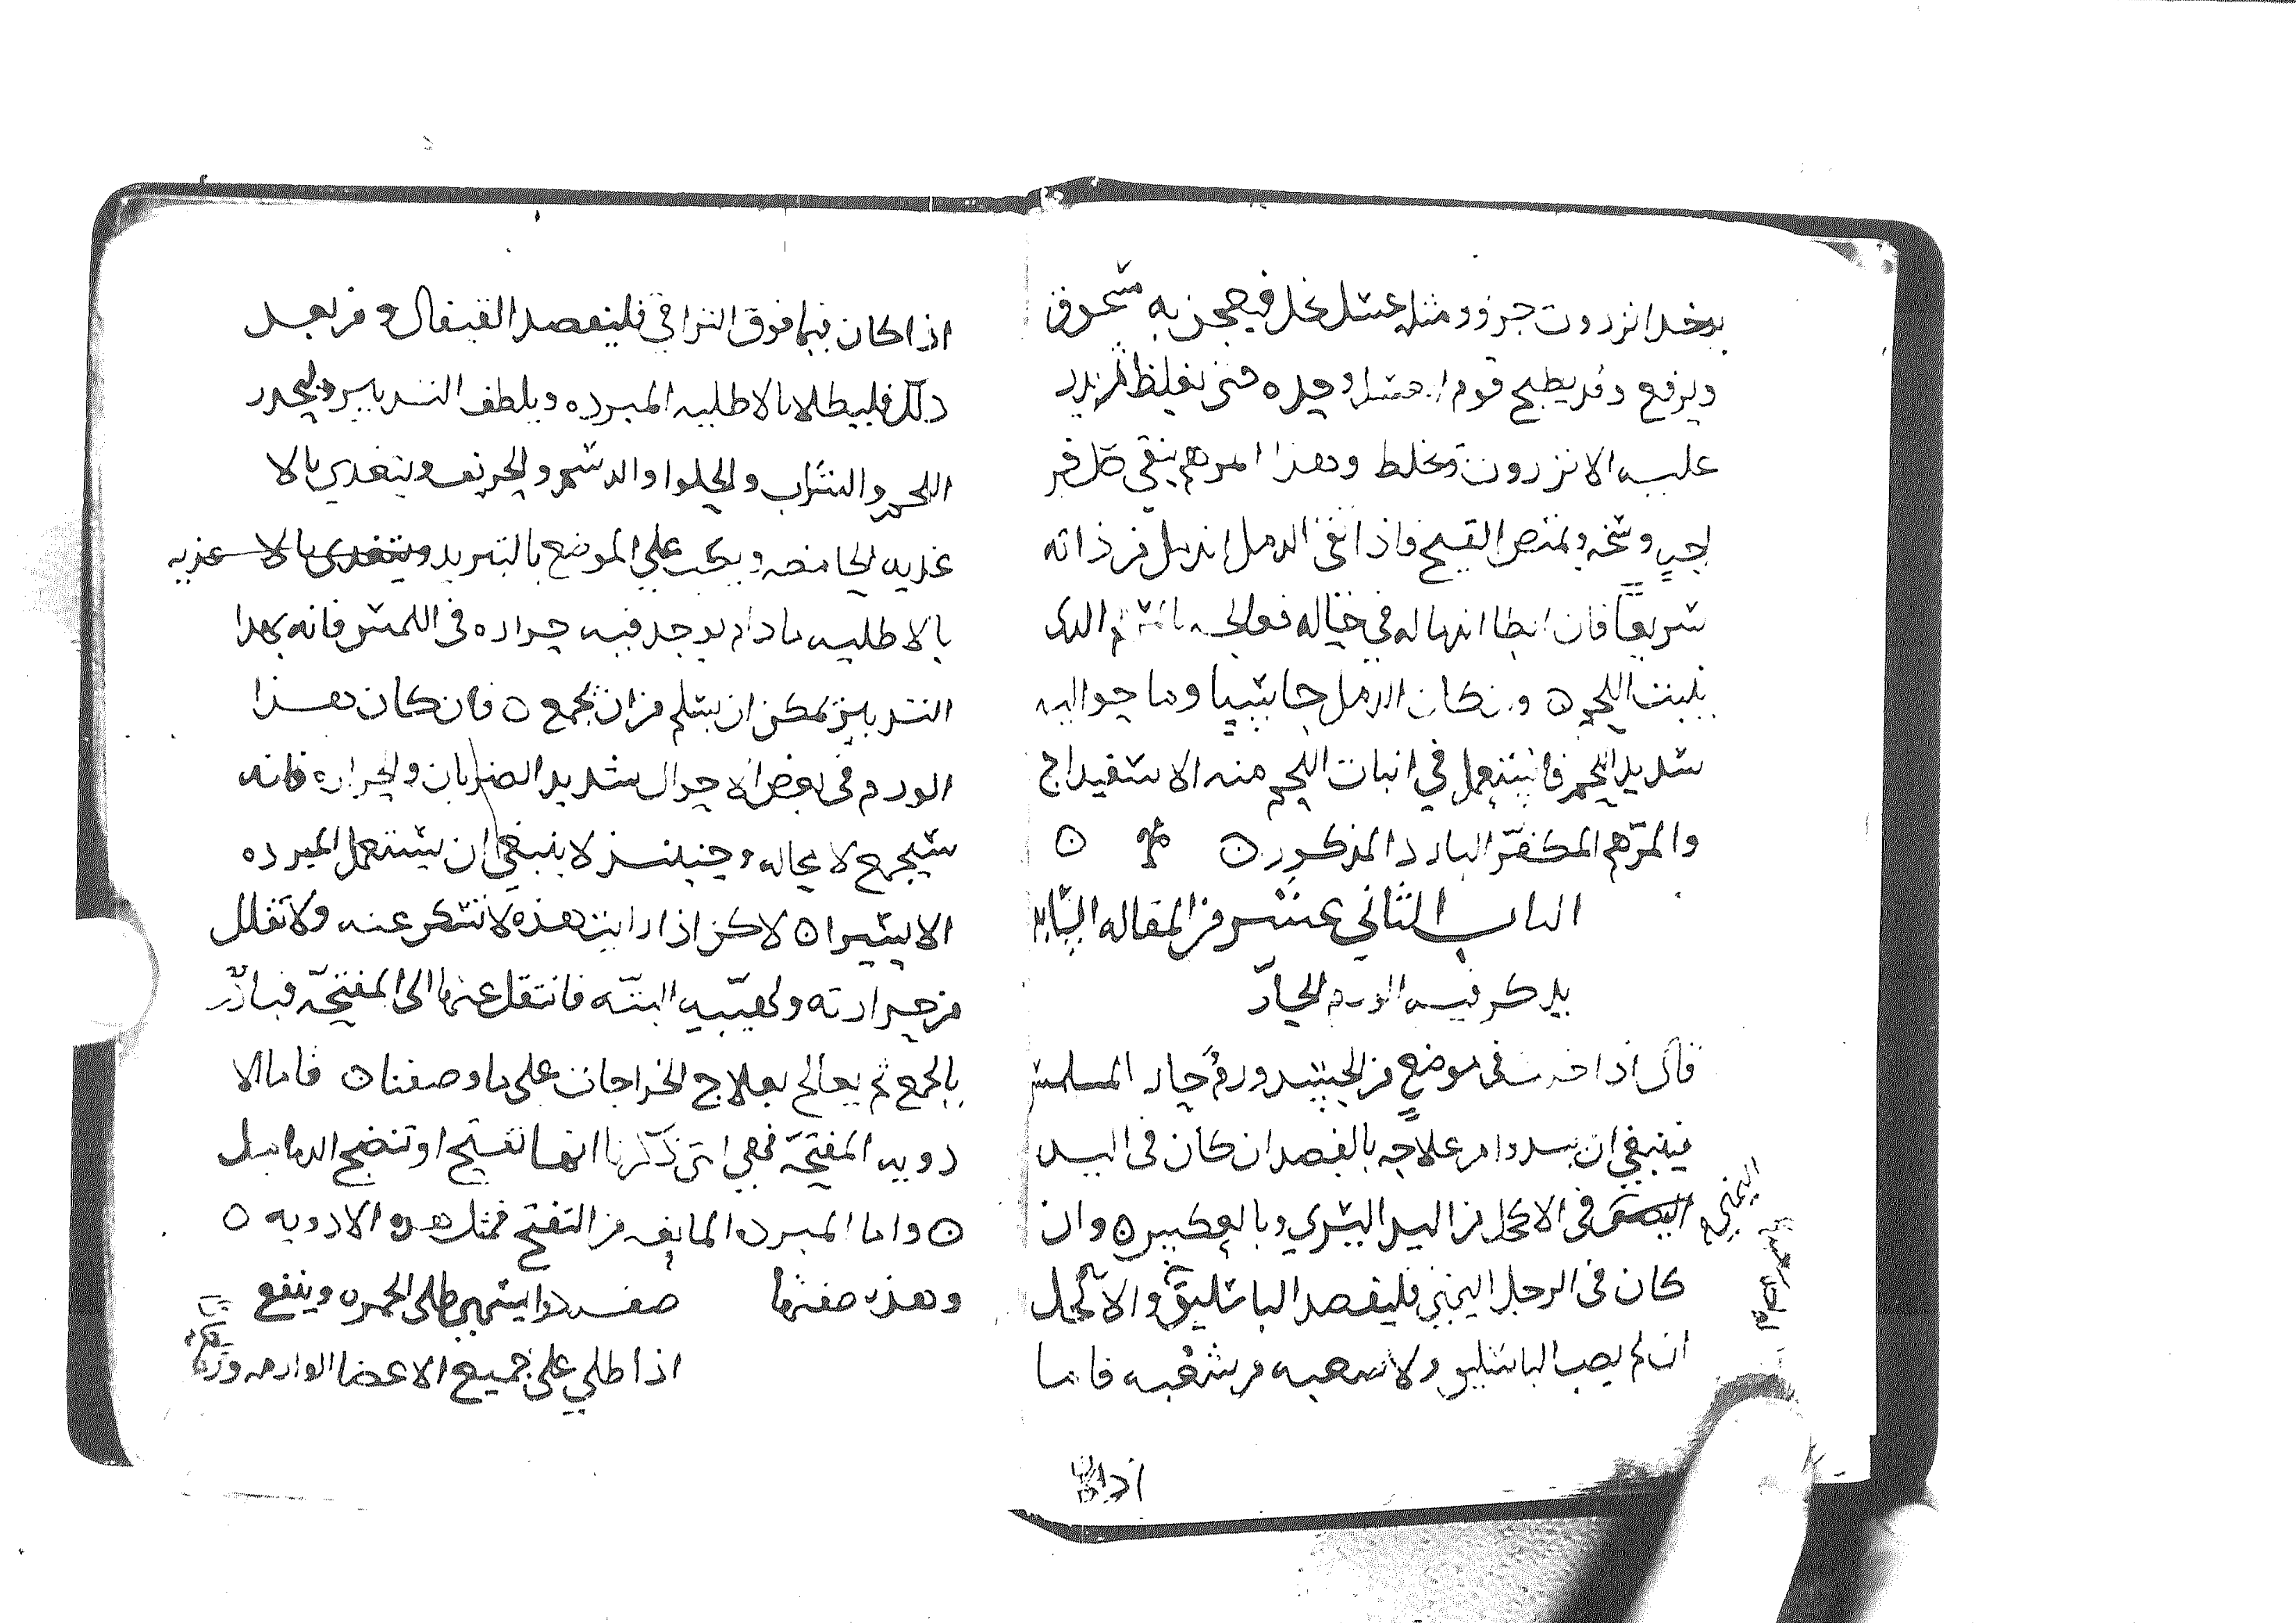 يوخد انزروت جزو ومثله عسل نحل فيعجن به مسحوق
ويرفع وقد يطبخ قوم العسل وحده حتى يغلظ ثم يدر
عليه الانزروت ويخلط وهذا المرهم ينقي كل
وسخه ويمتص القيح فاذا نقي الدمل اندمل من ذاته
سريعًا فان ابطا اندماله في فعالجه بالمرهم الدى
ينبت اللحم ٥ وان كان الدمل جاسيا وما حواليه
شديد الحمره فاستعمل في انبات اللحم منه الاسفيداج
والمرّهم البارد المذكور ٥ ٥
الباب الثاني عشر من المقاله
يدكر فيه الورم الحارّ
قال اذا حدث فى موضع من الجسد ورمٌ حار الملمس
فينبغي ان يبدوا من علاجه بالفصد ان كان فى اليد
اليمني
فى الاكحل من اليد اليسرى وبالعكس ٥ وان
كان فى الرجل اليمني فليفصد الباسليق والاكحل
ان لم يصب الباسليق ولا شعبه من شعبه فاما
اذا
اذا كان فيما فوق التراقي فليفصد القيفال ومن بعد
دلك فليطلا بالاطليه المبرده ويلطف التدبير وليحدر
اللحم والشراب والحلوا والدسم والحريف ويتغدي بالا
غديه الحامضه ويكب على الموضع بالتبريد ويتغدى بالاغديه
بالاطليه ما دام يوجد فيه حراره فى اللمس فانه بهدا
التدبير يمكن ان يسلم من ان يجمع ٥ فان كان هذا
الورم فى بعض الاحوال شديد الضربان والحراره فانه
سيجمع لا محاله وحينئذ لا ينبغي ان يستعمل المبرده
الا يسيرا ٥ لاكن اذا رايت هذه لا تسكن عنه ولا تقلل
من حرارته ولهيبه البتّه فانتقل عنها الى المفتحّه فبادر
بالجمع ثم يعالج بعلاج الخراجات على ما وصفنا ٥ فاما الا
دويه المفتحّه فهي التي ذكرنا انها تفتح او تنضج الدماميل
٥ واما المبرده المانعه من التفتح فمثل هده الادويه ٥
وهذه صفتها صفه دوا يسمى طلى الحمره وينفع
اذا طلي على جميع الاعضا الوارمه